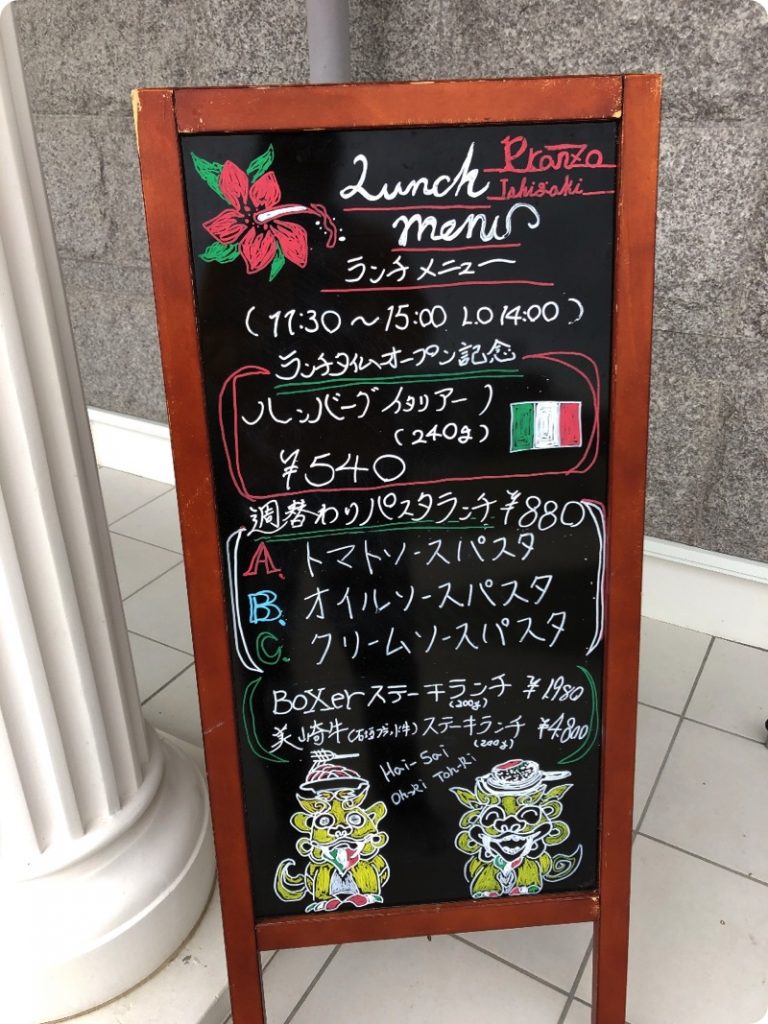 Lunch
Pranzo
Ishigaki
menu
ランチメニュー
(11:30～15:00 L.O 14:00)
ランチタイムオープン記念
ハンバーグイタリアーノ
(240g)
¥540
週替わりパスタランチ ¥880
A. トマトソースパスタ
B. オイルソースパスタ
C. クリームソースパスタ
Boxerステーキランチ ¥1980
(200g)
美崎牛(石垣ブランド牛)ステーキランチ ¥4.800
(200g)
Hai-Sai
Oh-Ri Toh-Ri